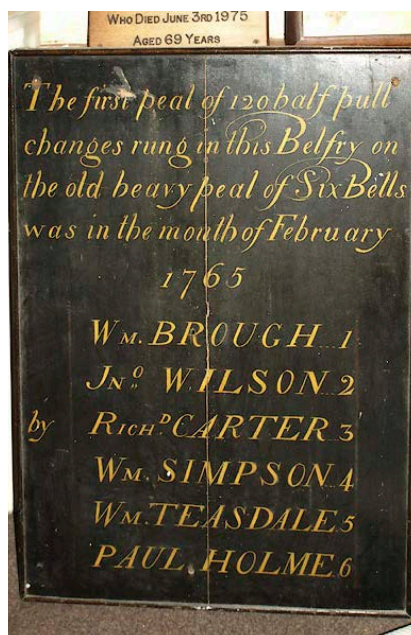 WHO DIED JUNE 3RD 1975
AGED 69 YEARS
The first peal of 120 half pull
changes rung in this Belfry on
the old heavy peal of Six Bells
was in the month of February
1765
WM. BROUGH 1
JNO WILSON 2
by RICHD. CARTER 3
WM. SIMPSON 4
WM. TEASDALE 5
PAUL HOLME 6